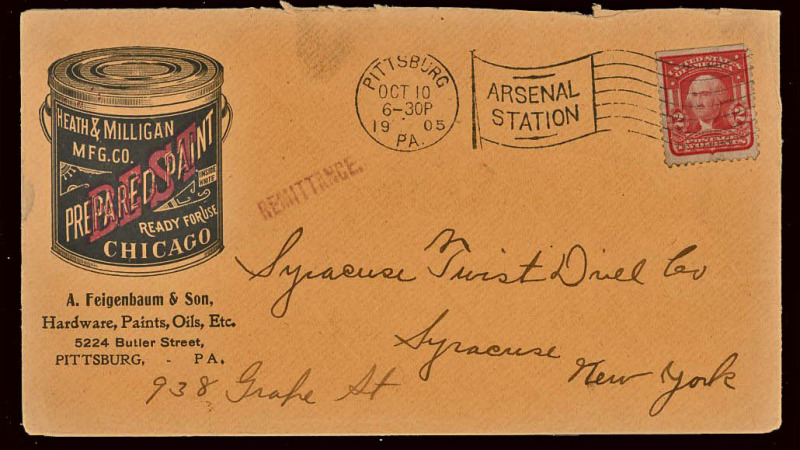 HEATH & MILLIGAN
MFG. CO.
BEST
PREPARED PAINT
READY FOR USE
CHICAGO
A. Feigenbaum & Son,
Hardware, Paints, Oils, Etc.
5224 Butler Street,
PITTSBURG, - PA.
PITTSBURG
OCT 10
6-30P
1905
PA.
ARSENAL
STATION
2 2
POSTAGE
REMITTANCE.
Syracuse Twist Drill Co
Syracuse
New York
938 Grape St